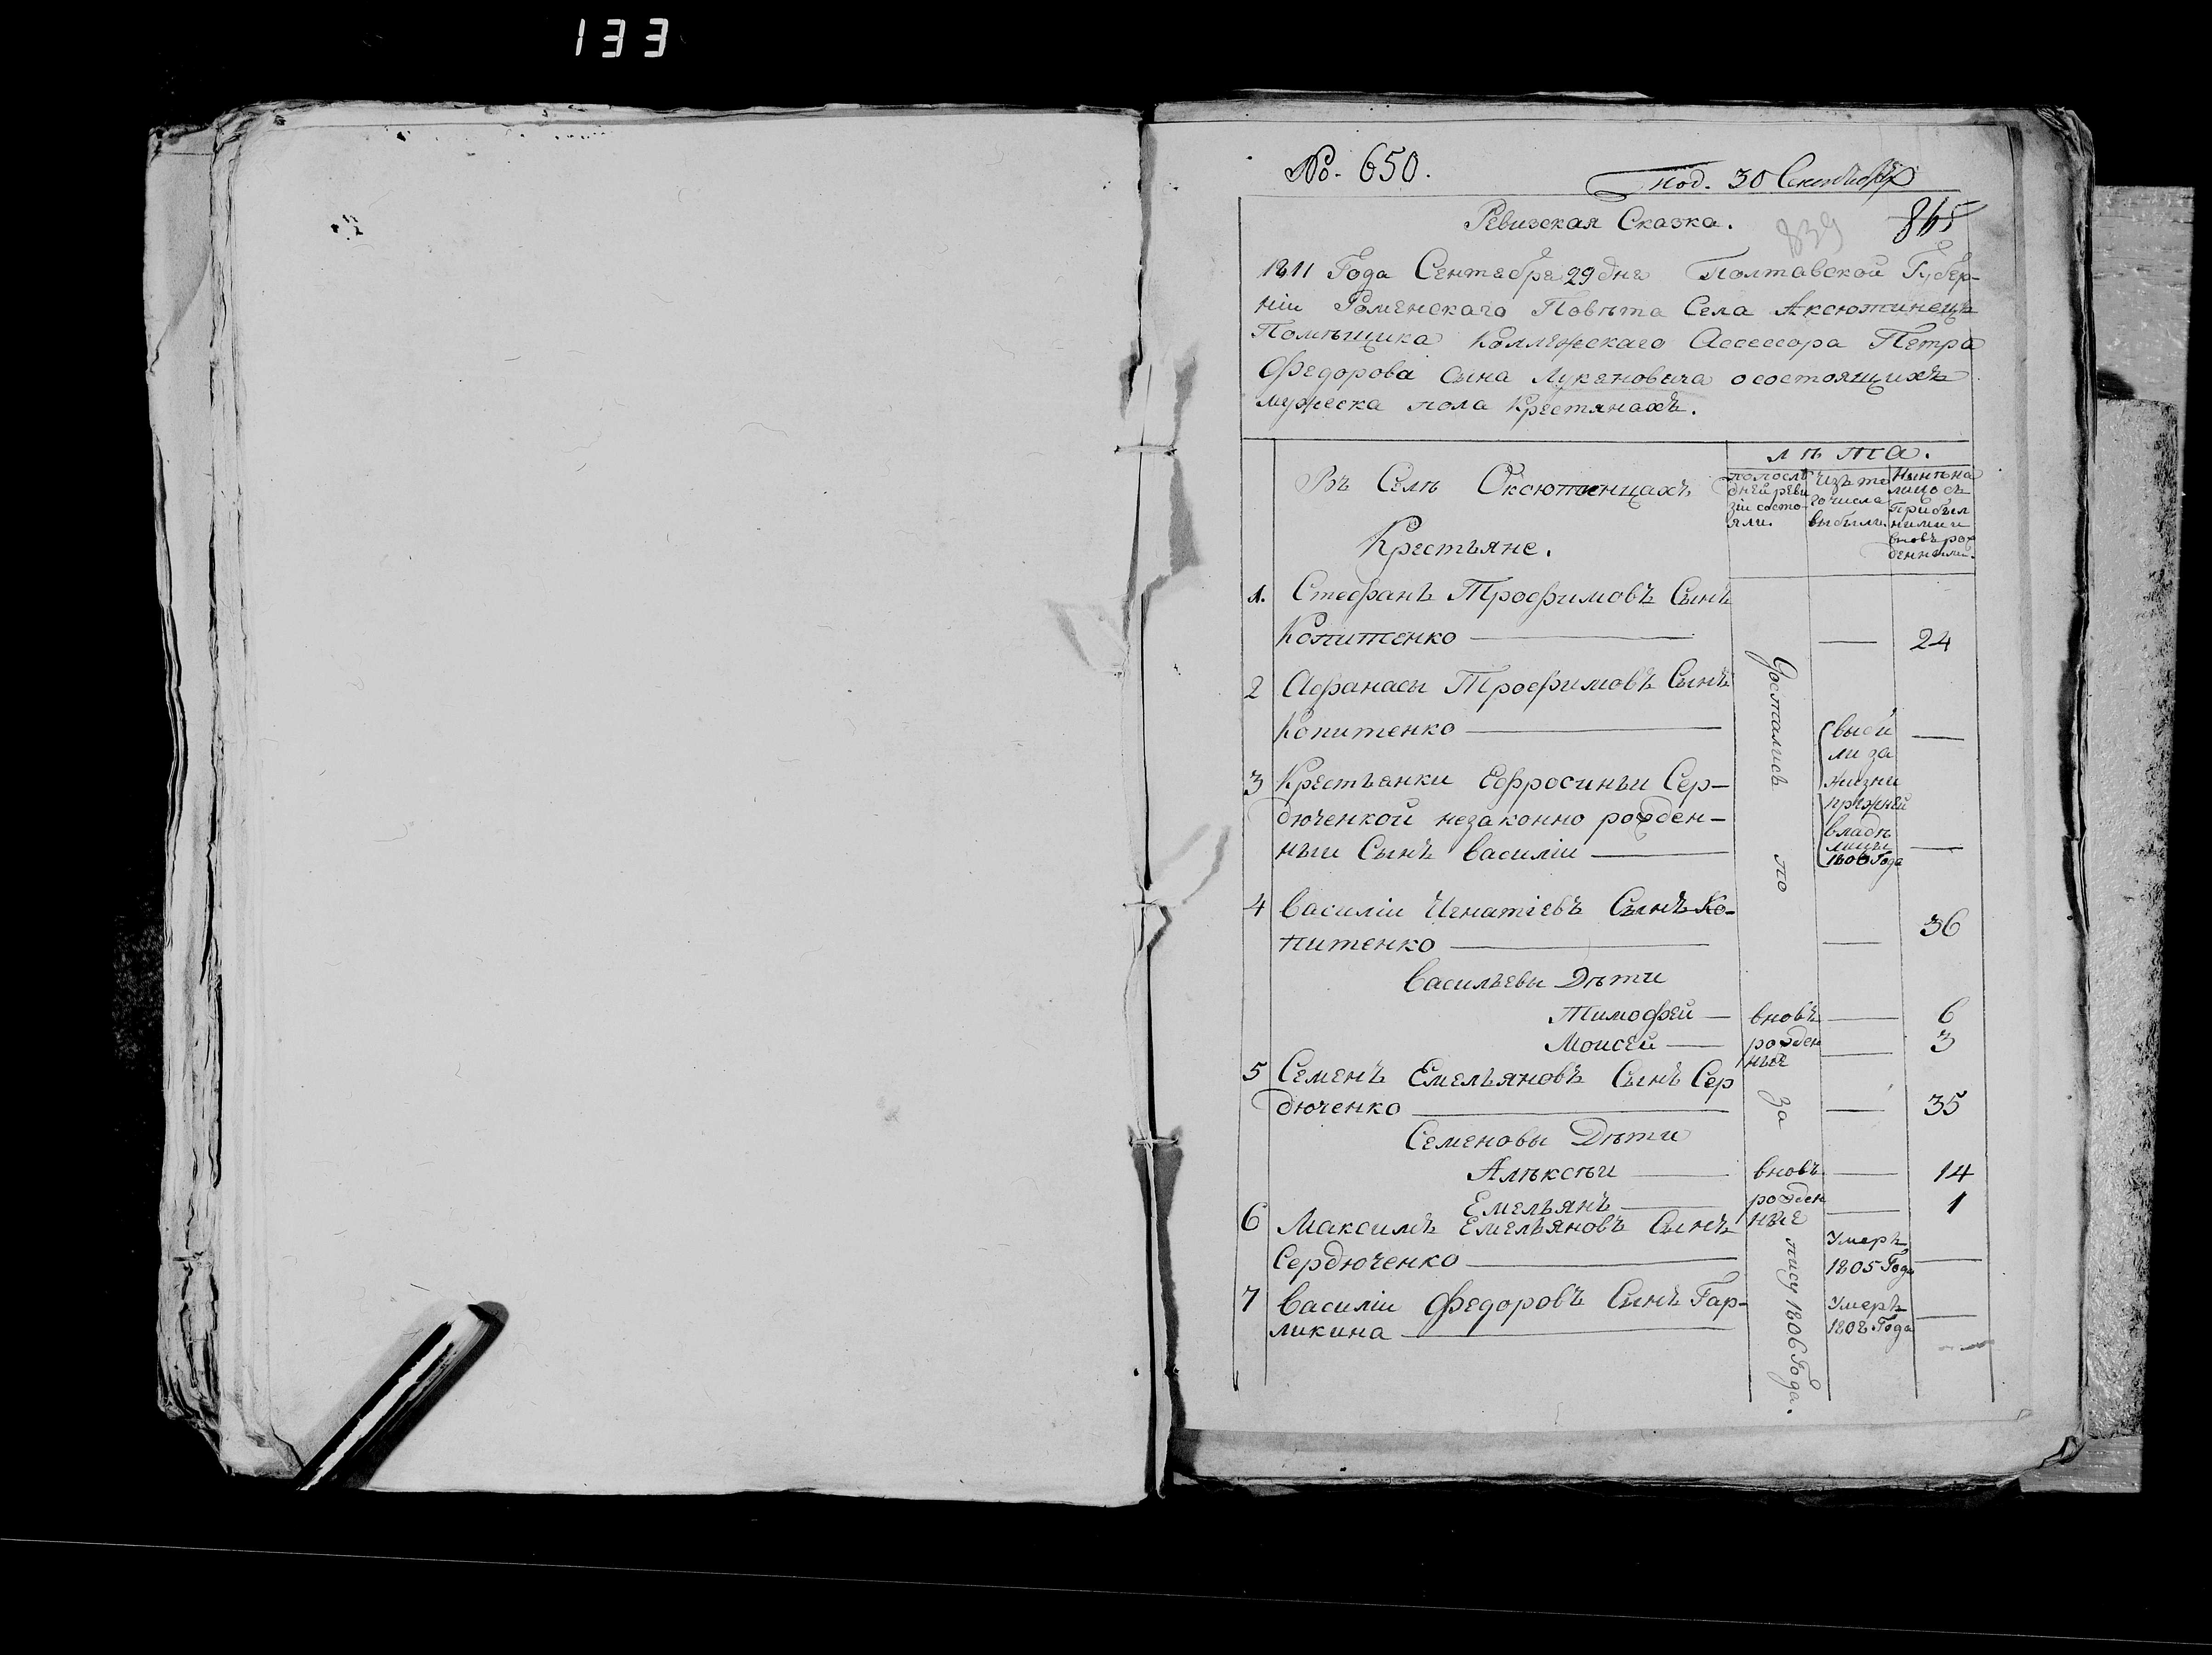 133
No. 650.
под. 30 Сентября
Ревизская Сказка.
839 865
1811 Года Сентебре 29 дня Полтавской Губер-
ніи Роменскаго Повѣта Села Аксютинецъ
Помѣщика Коллежскаго Ассессора Петра
Федорова сына Лукяновича о состоящихъ
мужеска пола Крестянахъ.
лѣта.
Въ Селѣ Оксютинцахъ
Крестьяне.
по послѣ
дней реви
зіи состо-
яли.
Изъ то
го числа
выбыли.
Нынѣ на
лицо съ
прибыл
ними и
вновь рож
денными.
1. Стефанъ Трофимовъ Сынъ
Копитенко — — 24
2 Афанасы Трофимовъ Сынъ
Копитенко — —
3 Крестьянки Ефросиньи Сер-
дюченкой незаконно рожден-
ныи Сынъ Василіи — —
выбы
ли за
жизни
прежней
владѣ
лицы
1806 Года
4 Василіи Игнатіевъ Сынъ Ко-
питенко — — 36
Васильевы Дѣти
Тимофей — вновь — 6
Моисей — рожден — 3
ные
5 Семенъ Емельяновъ Сынъ Сер
дюченко — — 35
Семеновы Дѣти
Алѣксѣи — вновь — 14
Емельянъ — рожден — 1
ные
6 Максимъ Емельяновъ Сынъ
Сердюченко — Умеръ 1805 Года —
7 Василіи Федоровъ Сынъ Гар-
ликина — Умеръ 1808 Года —
Досталисъ по за пису 1806 Года.